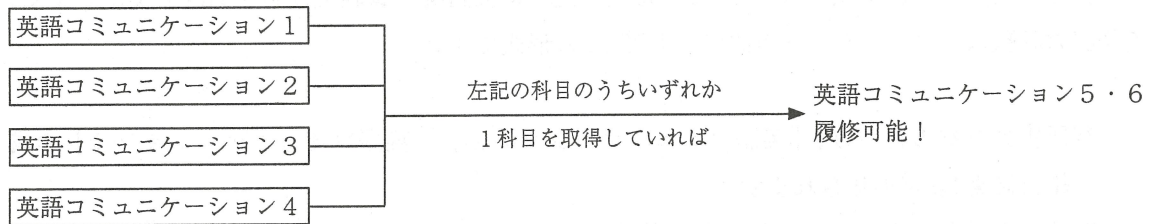 英語コミュニケーション1
英語コミュニケーション2
英語コミュニケーション3
英語コミュニケーション4
左記の科目のうちいずれか
1科目を取得していれば
英語コミュニケーション5・6
履修可能！